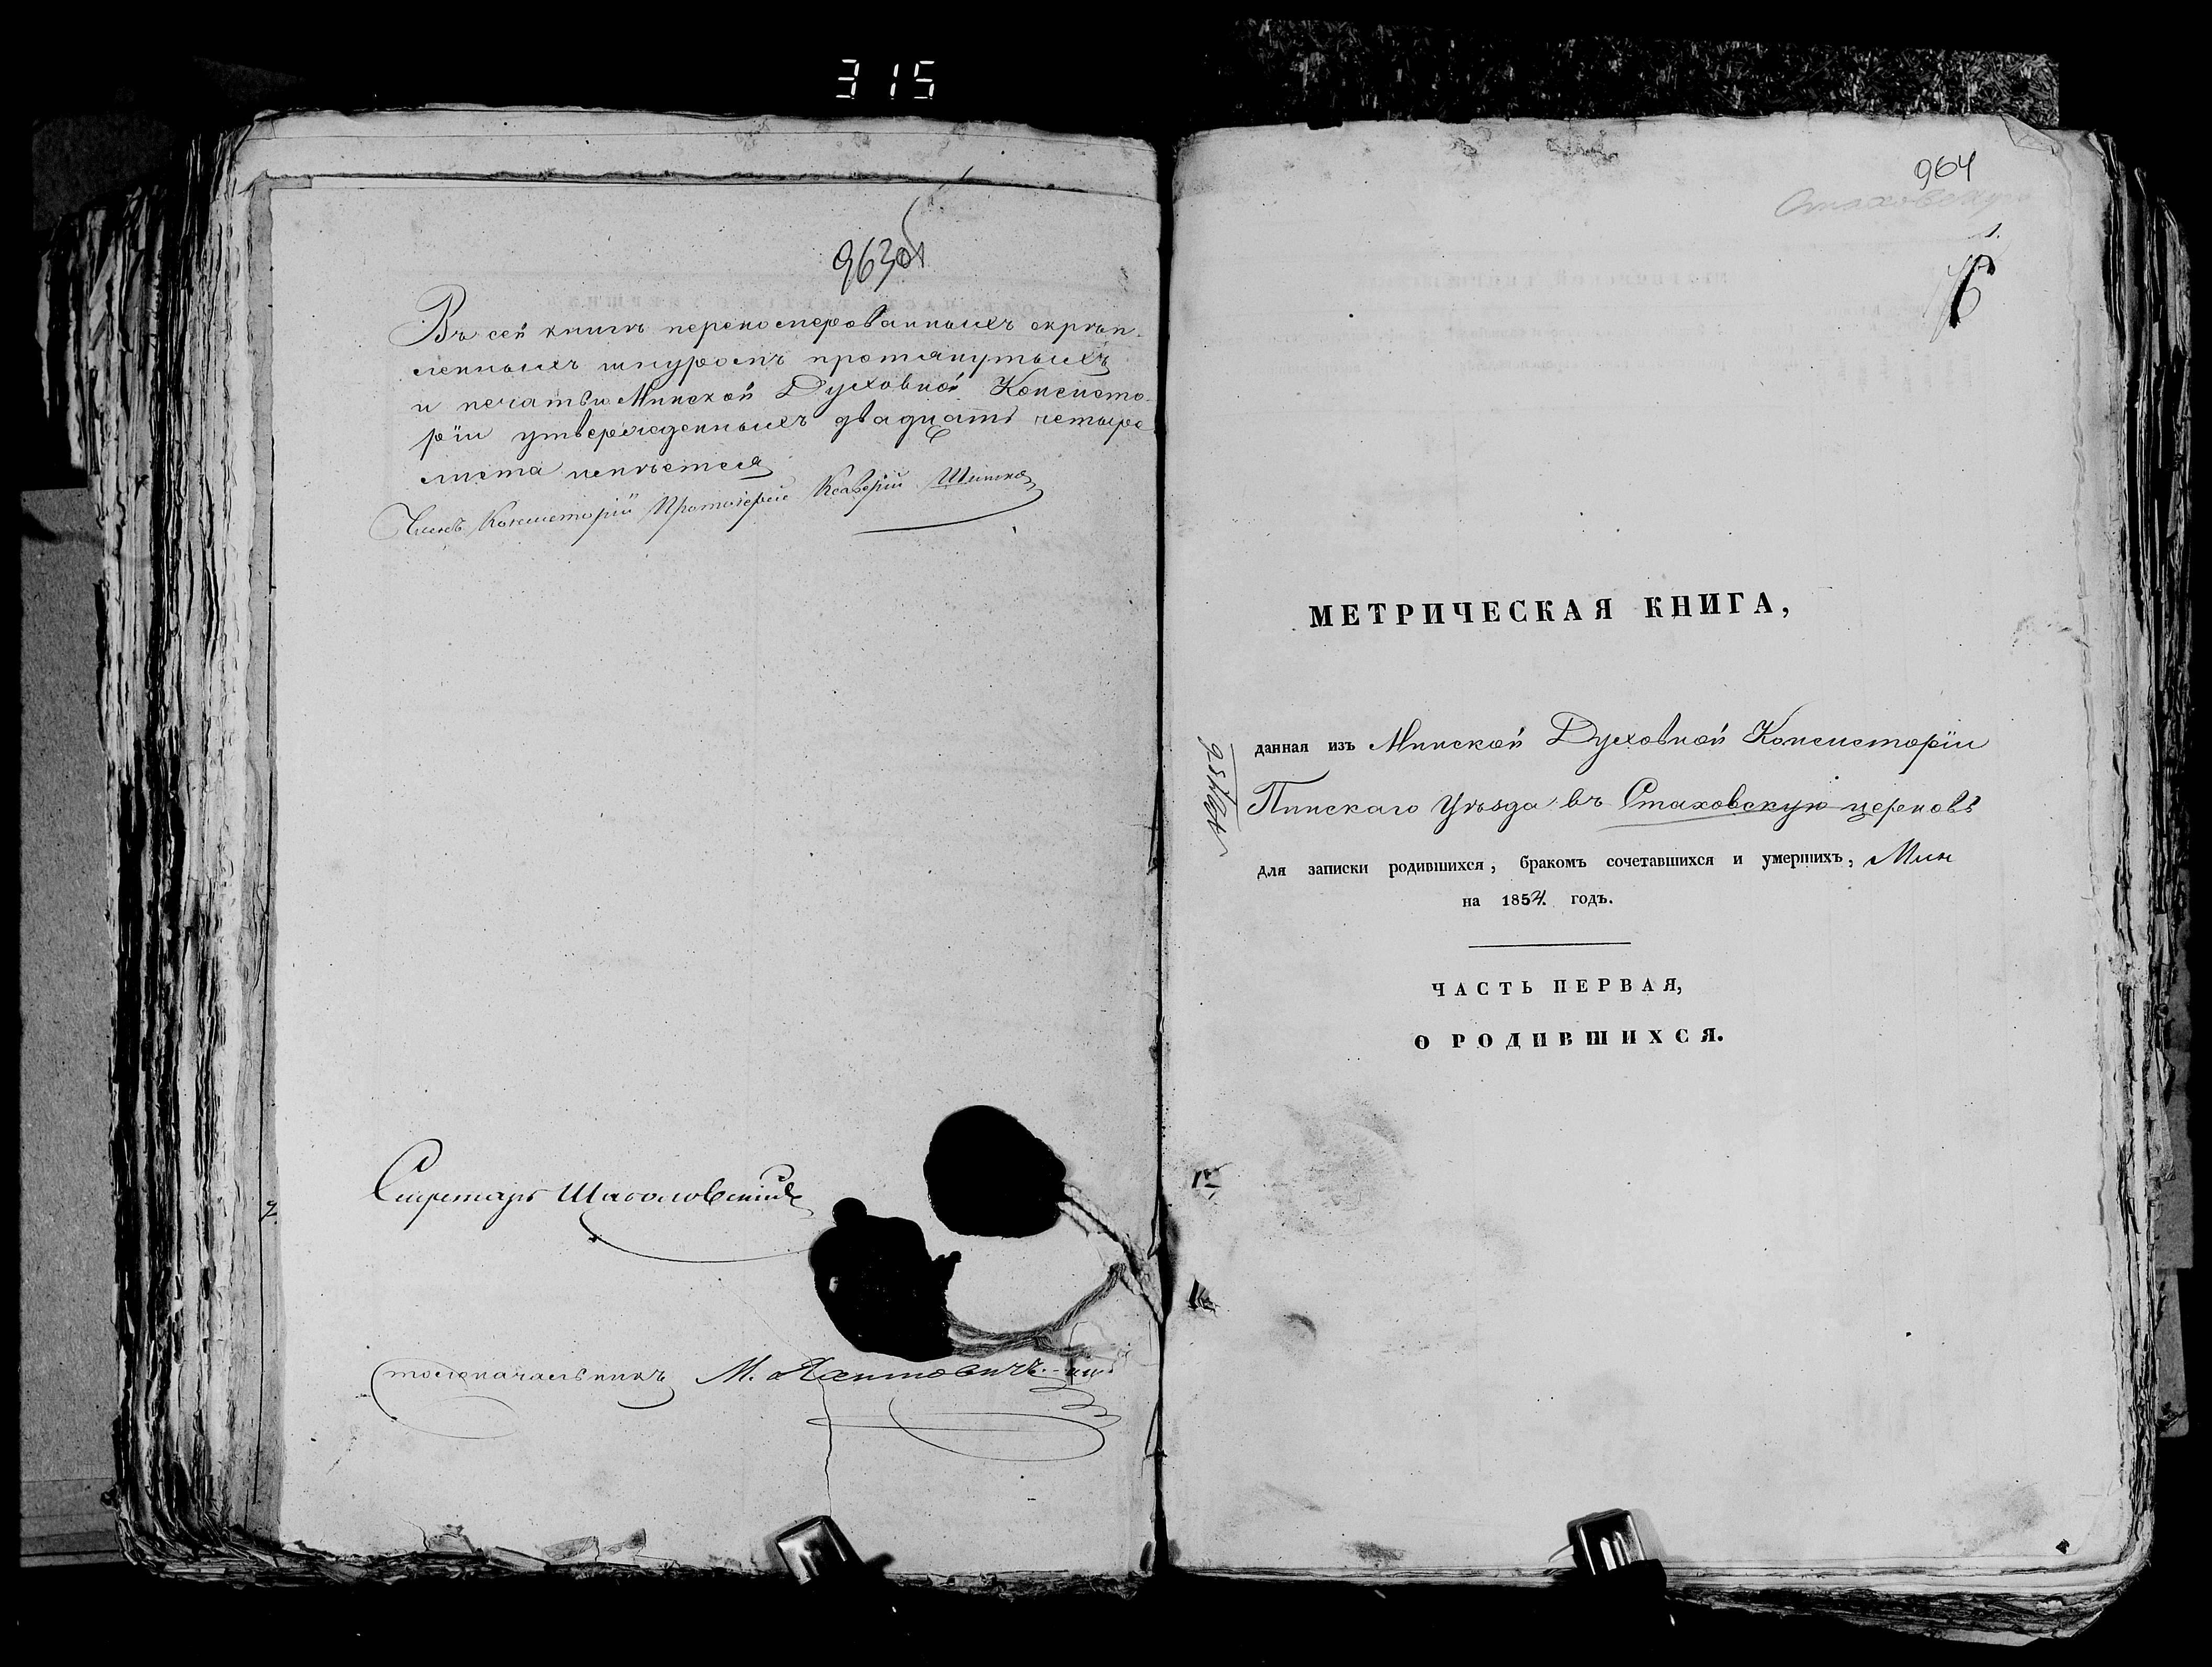 315
963об
Въ сей книгѣ перенумерованныхъ скрѣп-
ленныхъ шнуромъ протянутыхъ
и печатью Минской Духовной Консисто-
ріи утвержденныхъ двадцать четыре
листа имѣется
Членъ Консисторіи Протоіерей Ксаверій
Секретарь
Столоначальникъ М.
964
Стаховскую
1.
МЕТРИЧЕСКАЯ КНИГА,
данная изъ Минской Духовной Консисторіи
Пинскаго Уѣзда въ Стаховскую церковь
для записки родившихся, бракомъ сочетавшихся и умершихъ, Мин
на 1854. годъ.
ЧАСТЬ ПЕРВАЯ,
О РОДИВШИХСЯ.